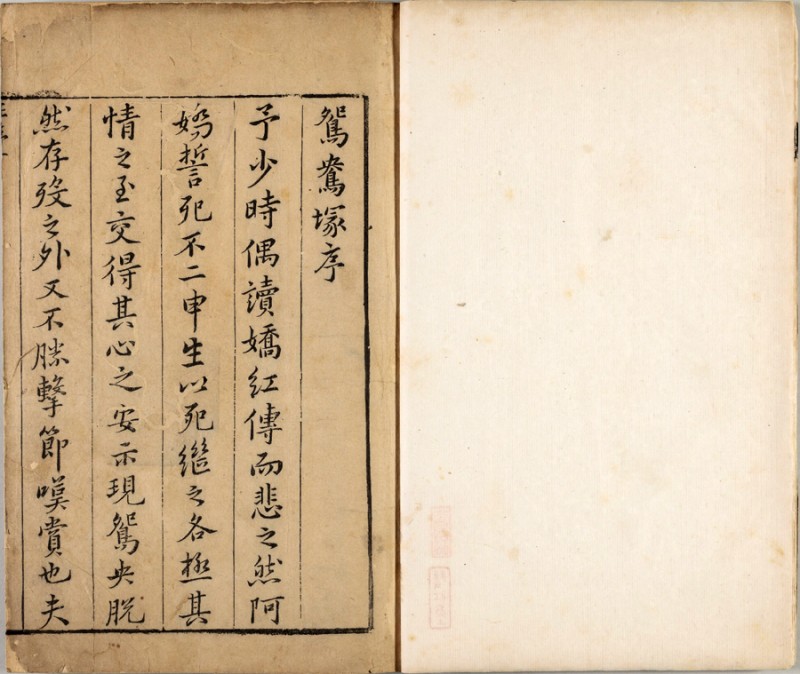 鴛鴦塚序
予少時偶讀嬌紅傳而悲之然阿
嬌誓死不二申生以死繼之各極其
情之至交得其心之安示現鴛央脫
然存歿之外又不勝擊節嘆賞也夫